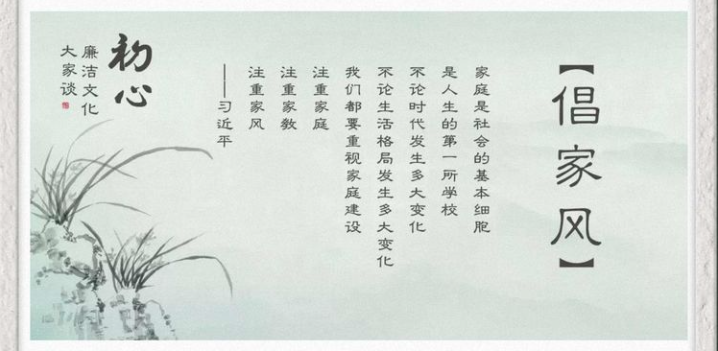 【倡家风】
家庭是社会的基本细胞
是人生的第一所学校
不论时代发生多大变化
不论生活格局发生多大变化
我们都要重视家庭建设
注重家庭
注重家教
注重家风
——习近平
初心
廉洁文化
大家谈